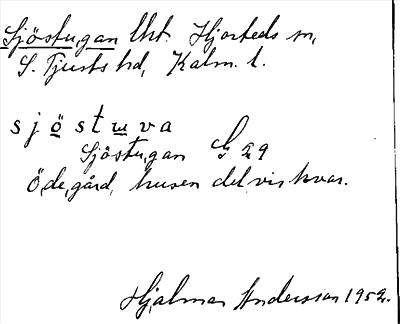 Sjöstugan lht. Hjorteds sn,
S. Tjusts hd, Kalm. l.
sjöstuva
Sjöstugan G 29
Ödegård, husen delvis kvar.
Hjalmar Andersson 1952.